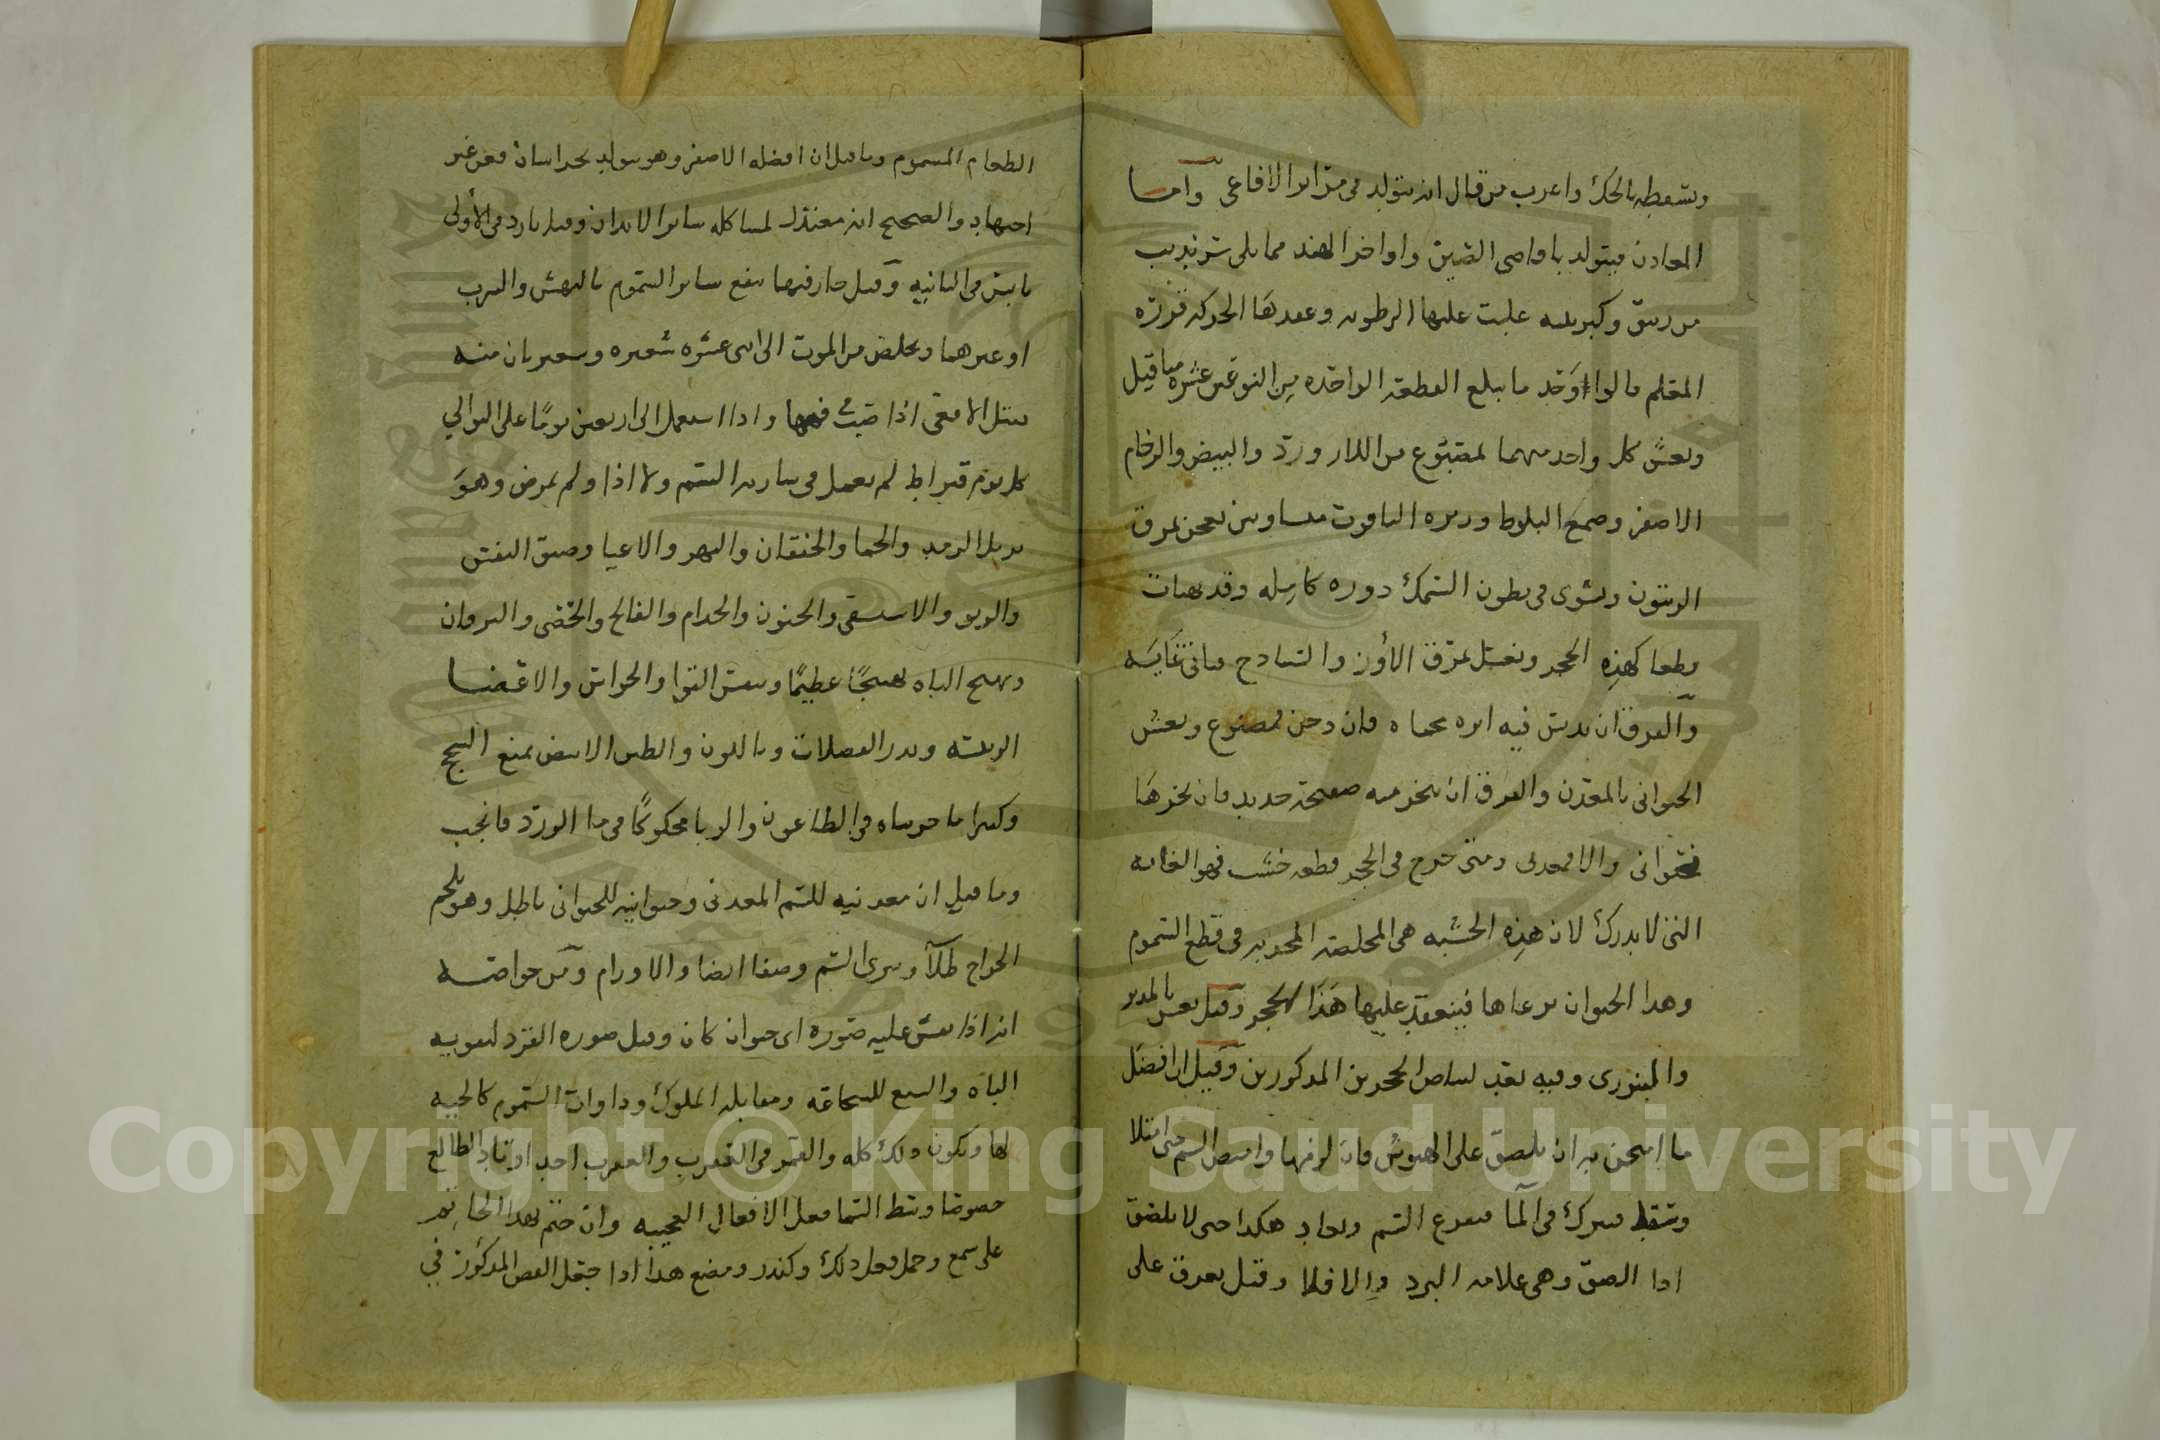 وتسقطه بالحك واغرب من قال انه يتولد في مراير الافاعي وآما
المعادن فيتولد باقاصي الصين واواخر الهند مما يلي سرنديب
من زيبق وكبريت غلبت عليها الرطوبه وعقدها الحر كذا قرره
المعلم قالوا وَحَد ما يبلغ القطعه الواحده مِن النوعين عشره مثاقيل
ويغش كل واحد منهما بمصنوع من اللازورد والبيض والرخام
الاصفر وصمغ البلوط وزبره الياقوت متساويين يعجن بمرق
الزيتون ويشوى في بطون السمك دوره كامِله وقد يصاب
قطعا كهذِه الحجر ويغسل بمرق الأُرز والساذج فياتي غايَه
وآلفرق ان يدس فيه ابره محماه فان دخن فمصنوع ويغش
الحيواني بالمعدن والفرق ان يخر منه صفيحة حديد فان نخرها
فحيواني والا فمعدني ومتى خرج في الحجر قطعه خشب فهو الغايه
التي لا يدرك لان هذِه الخشبه هي المخلصه المجربه في قطع السموم
وهذا الحيوان يرعاها فينعقد عليها هَذَا الحجر وَقيل يغش بالمدبر
والمينوري وفيه بعد لبياض الحجرين المذكورين وَقيل ان افضَل
ما امتحن به ان يلصق على المنهوش فان لزقها وامتص السم حتى امتلا
وسقط فيترك في آلما فيفرغ السم ويعاد هكذا حتى لا يلصق
اذا الصق وهي علامه البرء والا فلا وقيل يعرق على
الطعام المسموم وما قيل ان افضله الاصفر وهو يتولد بخراسان فعن غير
اجتهاد والصحيح انه معتدل لمشاكله ساير الابدان وقيل بارد في الأُولى
يابس في الثانيه وَقيل حار فيها ينفع ساير السموم بالنهش والشرب
او غيرهما ويخلص من الموت الى اثني عشره شعيره وشعيرتان منه
يقتل الافعى اذا صبت في فمها واذا استعمل الى اربعين يومًا على التوالي
كل يوم قيراط لم يعمل في شاربه السم ولا اذا ولم يمرض وهوَ
يزيل الرمد والحما والخفقان والبهر والاعيا وضيق النفس
والربو والاستسقى والجنون والجذام والفالج والحصى واليرقان
ويهيج الباه تهييجًا عظيمًا وينعش القوا والحواس والاعضا
الرييسه ويدر الفضلات وبا اللبن والطين الابيض يمنع السج
وكثيرا ما جربناه في الطاعون والوبا محكوكًا في ما الورد فانجب
وما قيل ان معدنيه للسم المعدني وحيوانيه للحيواني باطل وهو يلحم
الجراح طلآ ويبري السم وضعا ايضا والاورام وَمن خواصه
انه اذا نقش عليه صوره اي حيوان كان وقيل صوره القرد لتقويه
الباه والسبع للشجاعه ومقابله الملوك وذوات السموم كالحيه
لها ويكون ذلك كله والقمر في العقرب والعقرب احد اوتاد الطالع
خصوصا وسط السما فعل الافعال العجيبه وان ختم بهذا الخاتم
على شمع وحمل فعل ذلك وكندر ومضغ هذا اذا جعل الفص المذكور في